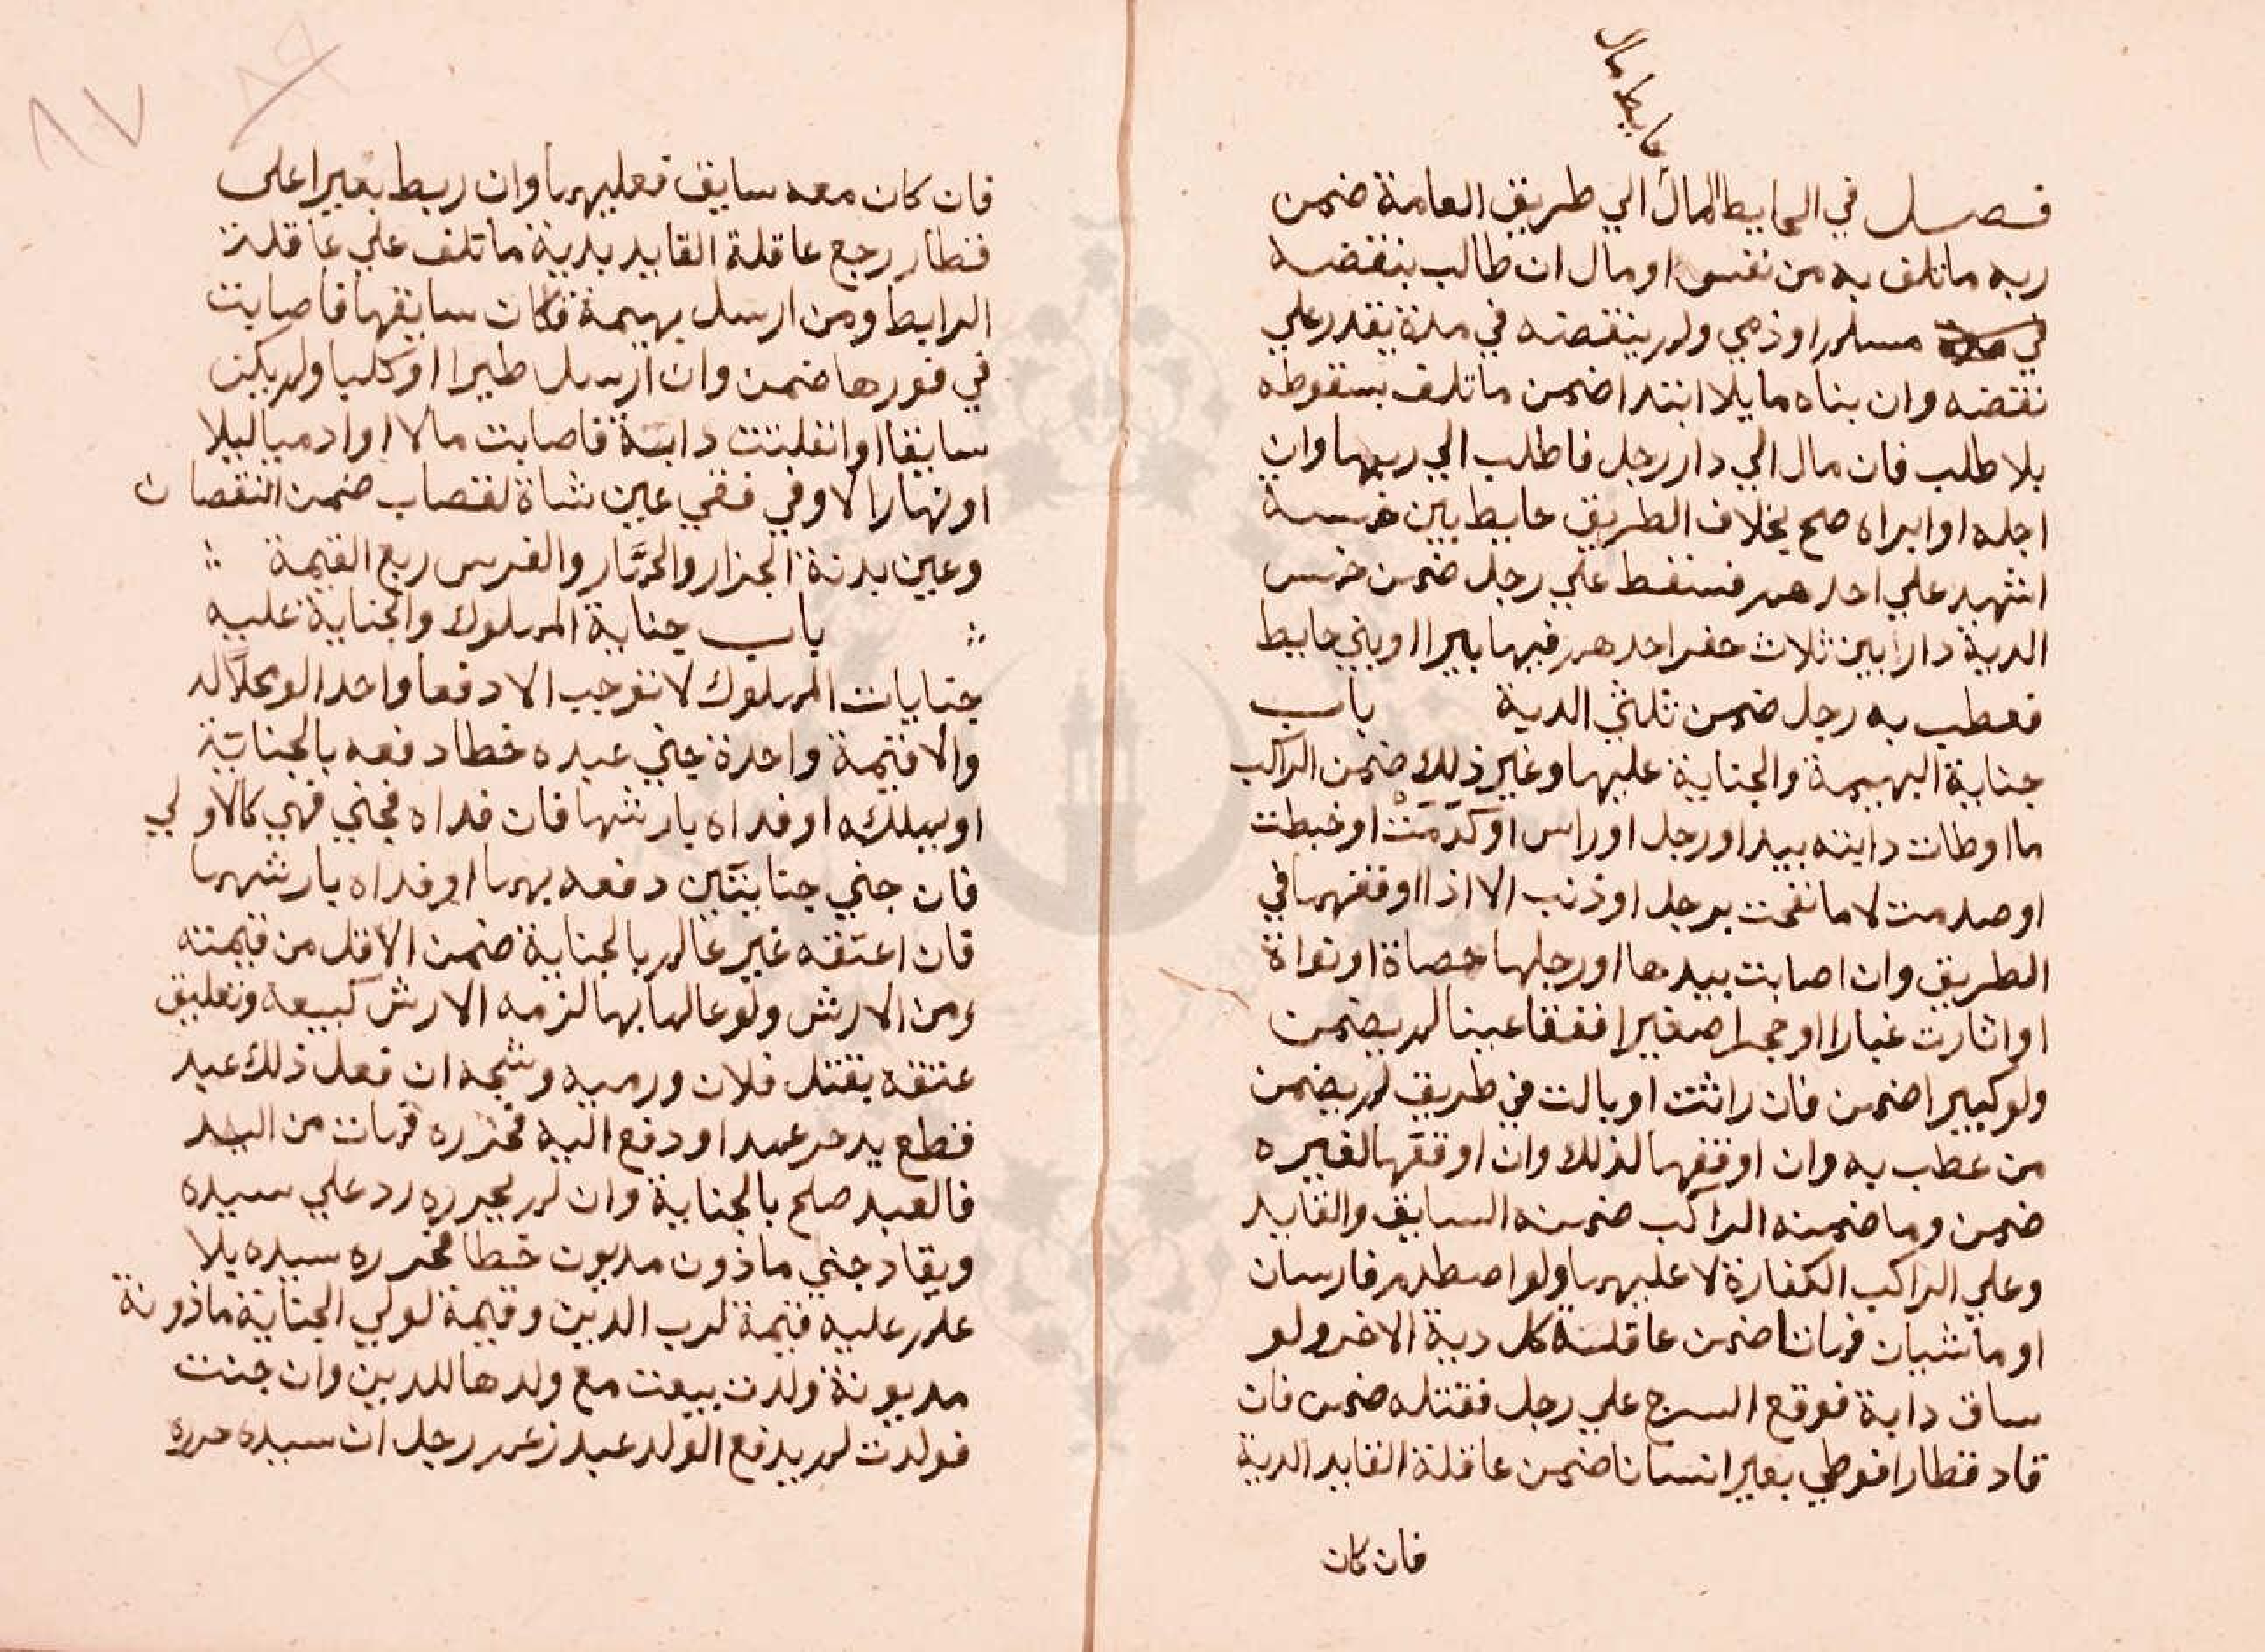 حايط مال
فصل في الحايط المال الي طريق العامة ضمن
ربه ماتلف به من نفس او مال ان طالب بنقضه
مسلم او ذمي ولم ينقضه في مدة يقدر علي
نقضه وان بناه مايلا ابتدا ضمن ماتلف بسقوطه
بلا طلب فان مال الي دار رجل فاطلب الي ربها وان
اجله او ابراه صح بخلاف الطريق حايط بين خمسة
اشهد علي احدهم فسقط علي رجل ضمن خمس
الدية دارا بين ثلاث حفر احدهم فيها بيرا او بني حايط
فعطب به رجل ضمن ثلثي الدية باب
جناية البهيمة والجناية عليها وغير ذلك ضمن الراكب
ما اوطات دابته بيد او رجل او راس او كدمت او خبطت
او صدمت لا ما نفحت برجل او ذنب الا اذا اوقفها في
الطريق وان اصابت بيدها او رجلها حصاة او نواة
او اثارت غبارا او حجرا صغيرا ففقا عينا لم يضمن
ولو كبيرا ضمن فان راثت او بالت في طريق لم يضمن
من عطب به وان اوقفها لذلك وان اوقفها لغيره
ضمن وما ضمنه الراكب ضمنه السايق والقايد
وعلي الراكب الكفارة لا عليهما ولو اصطدم فارسان
او ماشيان فماتا ضمن عاقلة كل دية الاخر ولو
ساق دابة فوقع السرج علي رجل فقتله ضمن فان
قاد قطارا فوطي بعير انسانا ضمن عاقلة القايد الدية
فان كان
٨٧
فان كان معه سايق فعليهما وان ربط بعيرا على
قطار رجع عاقلة القايد بدية ما تلف علي عاقلة
الرابط ومن ارسل بهيمة فكان سايقها فاصابت
في فورها ضمن وان ارسل طيرا او كلبا ولم يكن
سايقا او انفلتت دابة فاصابت مالا او ادميا ليلا
او نهارا لا وفي فقي عين شاة لقصاب ضمن النقصان
وعين بدنة الجزار والحمار والفرس ربع القيمة
باب جناية المملوك والجناية عليه
جنايات المملوك لا توجب الا دفعا واحدا لو محلا له
والا قيمة واحدة جني عبده خطا دفعه بالجناية
او يملكه او فداه بارشها فان فداه فجني فهي كالاولي
فان جني جنايتين دفعه بهما او فداه بارشهما
فان اعتقه غير عالم بالجناية ضمن الاقل من قيمته
ومن الارش ولو عالما بها لزمه الارش كبيعه وتعليق
عتقه بقتل فلان ورميه وشجه ان فعل ذلك عبد
قطع يد حر عمدا ودفع اليه فحرره فمات من اليد
فالعبد صلح بالجناية وان لم يحرره رد علي سيده
ويقاد جني ماذون مديون خطا فحرره سيده بلا
علم عليه قيمة لرب الدين وقيمة لولي الجناية ماذونة
مديونة ولدت بيعت مع ولدها للدين وان جنت
فولدت لم يدفع الولد عبد زعم رجل ان سيده حرره